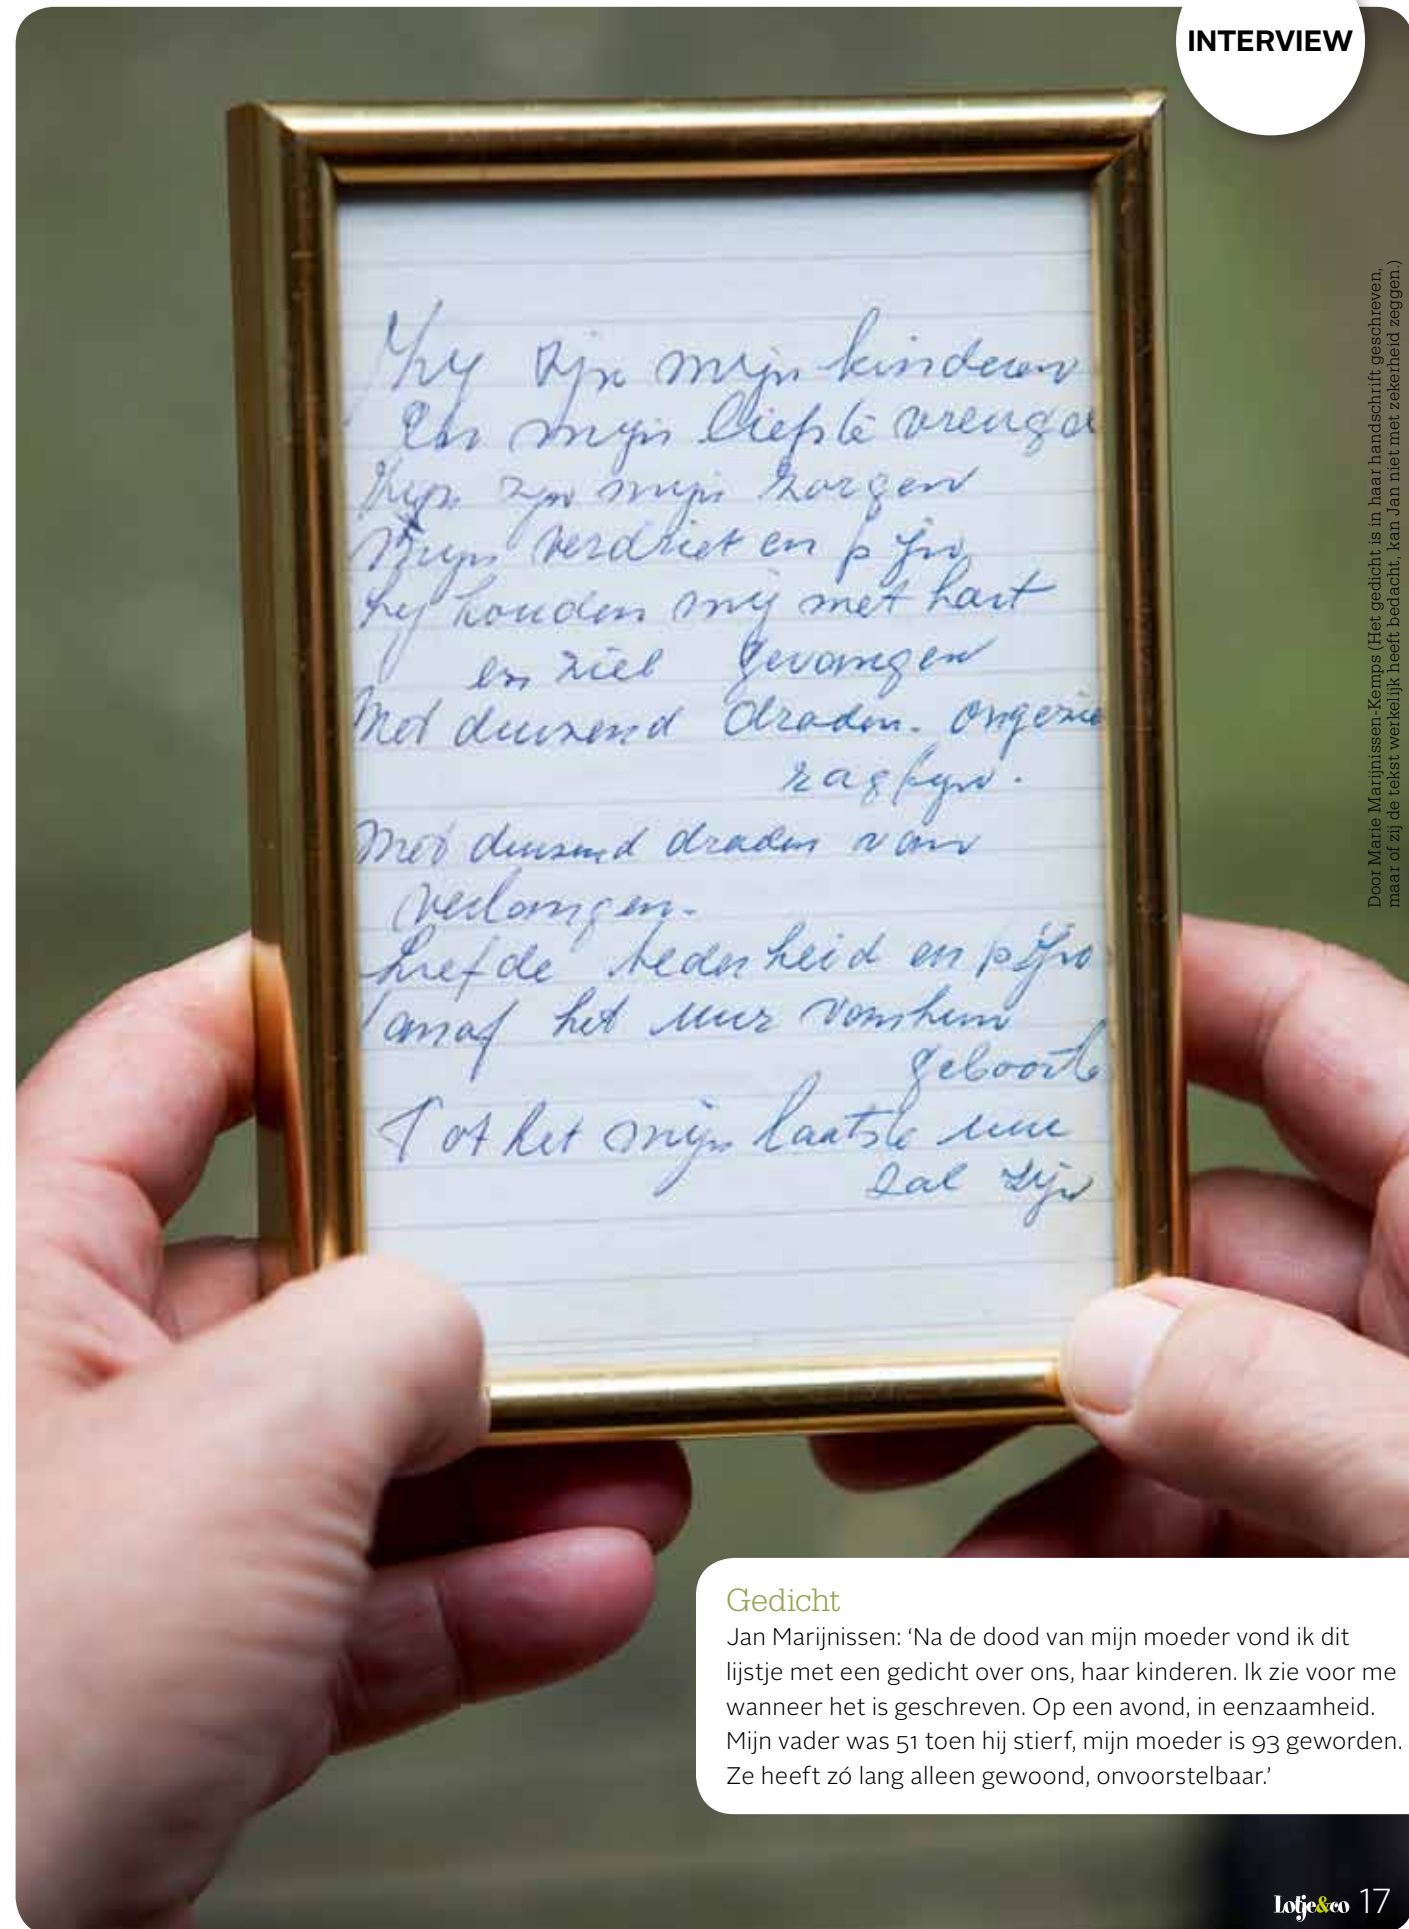 INTERVIEW
Zy zijn mijn kinderen
En mijn liefste vreugde
Zijn zijn mijn zorgen
Mijn verdriet en pijn
Zij houden mij met hart
en ziel gevangen
Met duizend draden. ongezie
ragfijn.
Met duizend draden van
verlangen.
Liefde tederheid en pijn
Vanaf het uur van hun
geboorte
Tot het mijn laatste uur
zal zijn
Door Marie Marijnissen-Kemps (Het gedicht is in haar handschrift geschreven,
maar of zij de tekst werkelijk heeft bedacht, kan Jan niet met zekerheid zeggen.)
Gedicht
Jan Marijnissen: ‘Na de dood van mijn moeder vond ik dit
lijstje met een gedicht over ons, haar kinderen. Ik zie voor me
wanneer het is geschreven. Op een avond, in eenzaamheid.
Mijn vader was 51 toen hij stierf, mijn moeder is 93 geworden.
Ze heeft zó lang alleen gewoond, onvoorstelbaar.’
Lotje&co 17